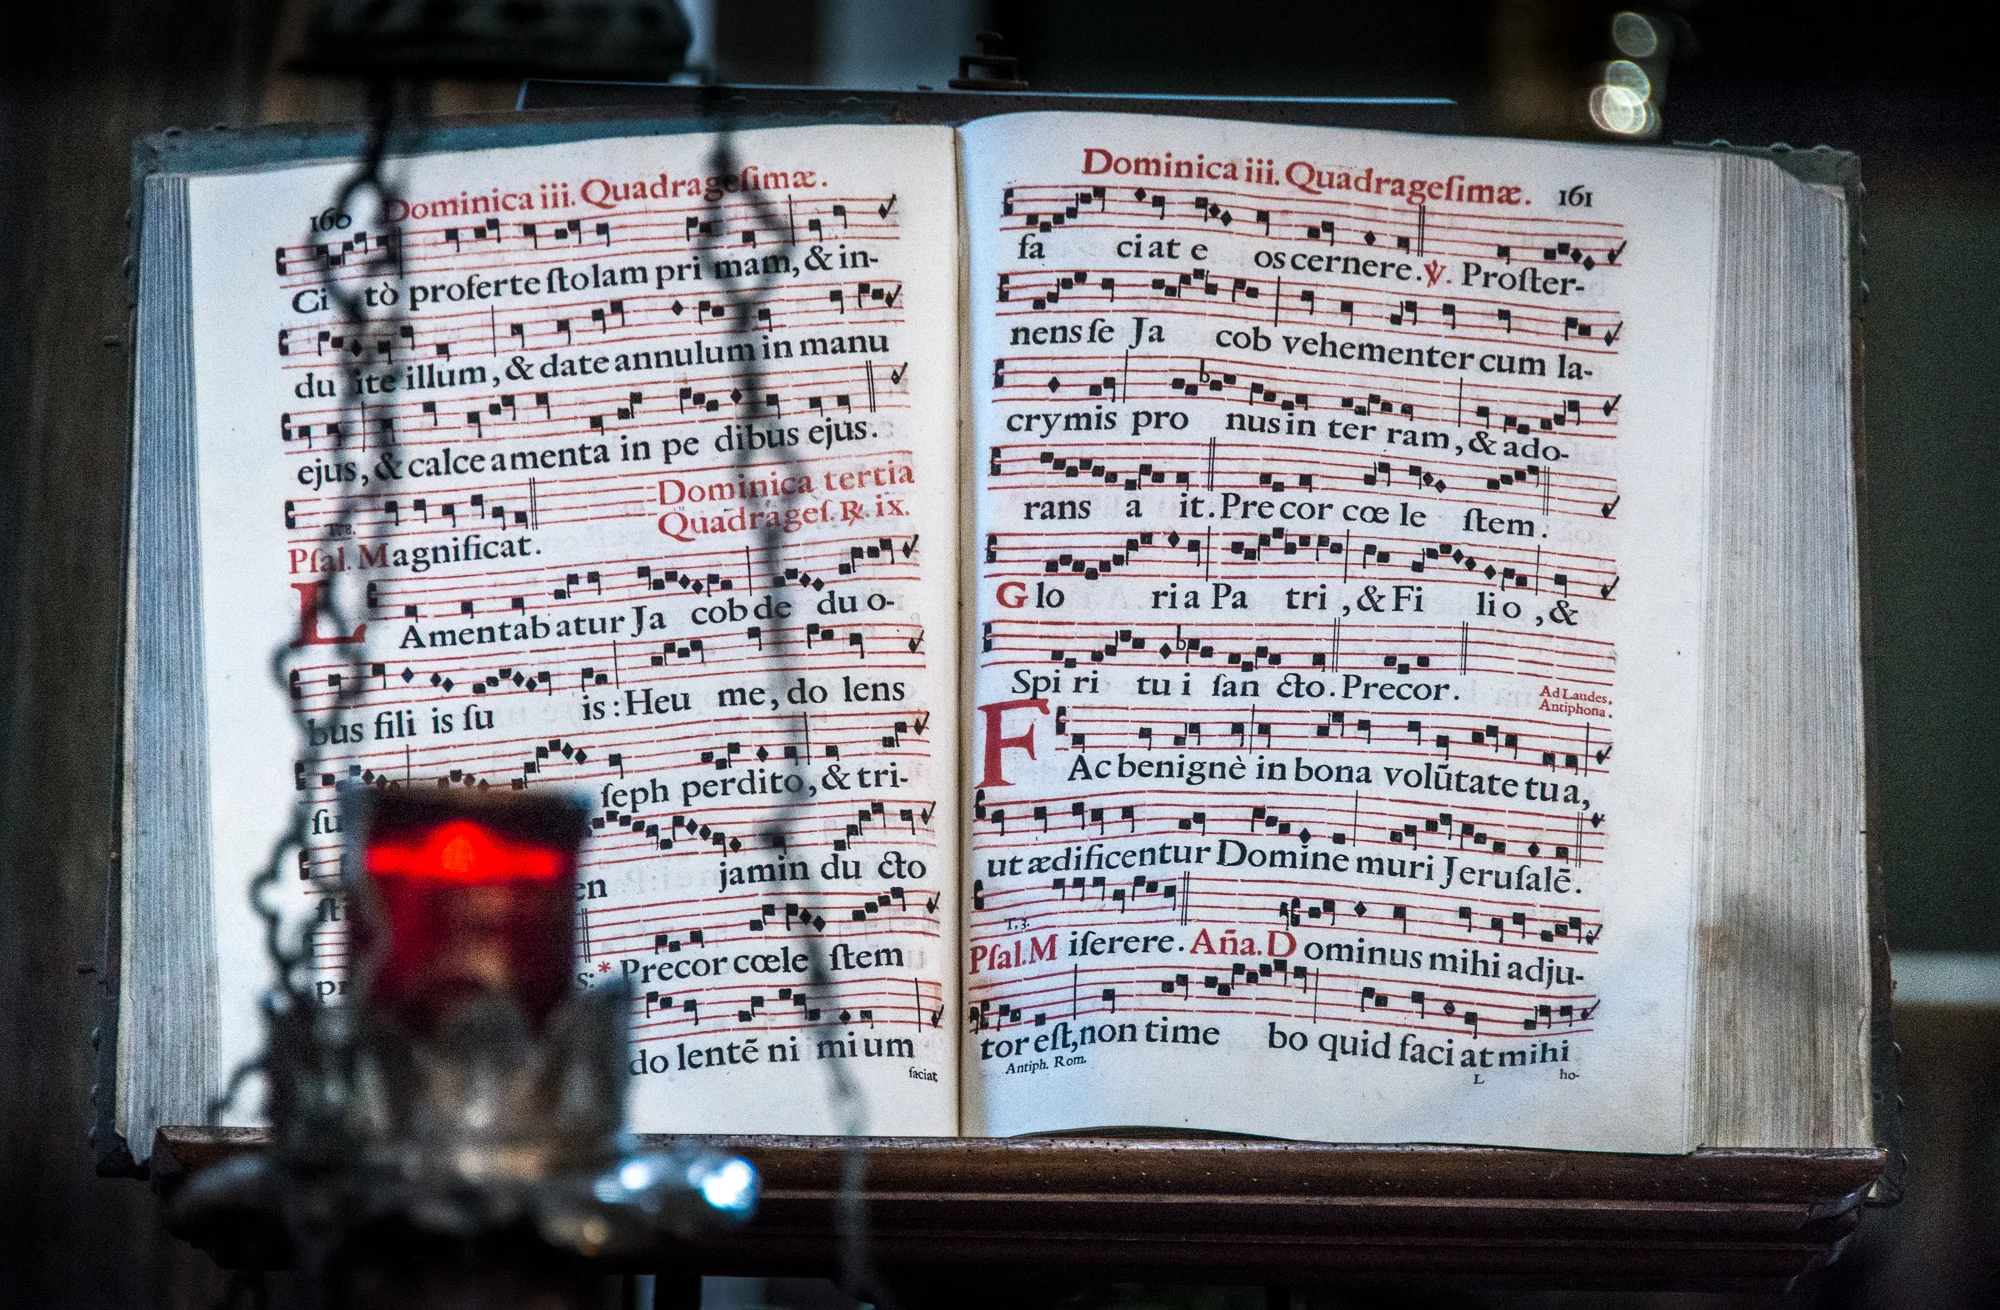 160 Dominica iii. Quadrageſimæ.
Ci tò proferte ſtolam pri mam, & in-
du ite illum, & date annulum in manu
ejus, & calceamenta in pe dibus ejus.
Dominica tertia
Quadrageſ. ℟. ix.
Pſal. Magnificat.
LAmentabatur Ja cob de du o-
bus fili is ſu is: Heu me, do lens
ſu ſeph perdito, & tri-
ſti en jamin du cto
pr s: * Precor cœle ſtem
do lentē ni mium
faciat
Dominica iii. Quadrageſimæ. 161
fa ciat e os cernere. ℣. Proſter-
nens ſe Ja cob vehementer cum la-
crymis pro nus in ter ram, & ado-
rans a it. Precor cœ le ſtem.
Glo ria Pa tri, & Fi lio, &
Spi ri tu i ſan cto. Precor.
Ad Laudes,
Antiphona.
FAc benignè in bona volūtate tua,
ut ædificentur Domine muri Jeruſalē.
T. 3.
Pſal. Miſerere. Aña. Dominus mihi adju-
tor eſt, non time bo quid faci at mihi
Antiph. Rom. L ho-